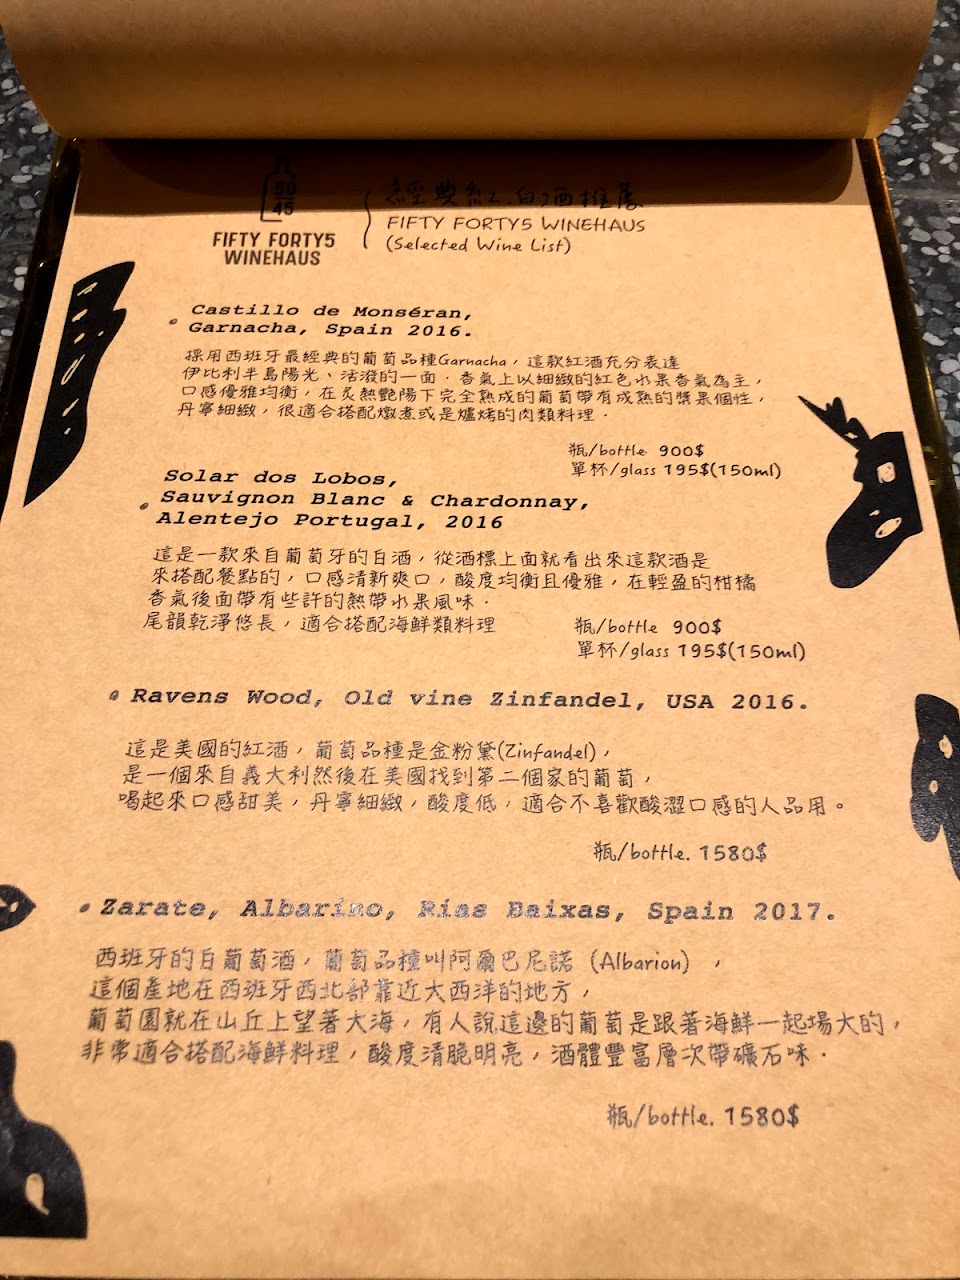 50
45
FIFTY FORTY5
WINEHAUS
經典紅白酒推薦
FIFTY FORTY5 WINEHAUS
(Selected Wine List)
Castillo de Monséran,
Garnacha, Spain 2016.
採用西班牙最經典的葡萄品種Garnacha，這款紅酒充分表達
伊比利半島陽光、活潑的一面．香氣上以細緻的紅色水果香氣為主，
口感優雅均衡，在炙熱艷陽下完全熟成的葡萄帶有成熟的漿果個性，
丹寧細緻，很適合搭配燉煮或是爐烤的肉類料理．
瓶/bottle 900$
單杯/glass 195$(150ml)
Solar dos Lobos,
Sauvignon Blanc & Chardonnay,
Alentejo Portugal, 2016
這是一款來自葡萄牙的白酒，從酒標上面就看出來這款酒是
來搭配餐點的，口感清新爽口，酸度均衡且優雅，在輕盈的柑橘
香氣後面帶有些許的熱帶水果風味．
尾韻乾淨悠長，適合搭配海鮮類料理
瓶/bottle 900$
單杯/glass 195$(150ml)
Ravens Wood, Old vine Zinfandel, USA 2016.
這是美國的紅酒，葡萄品種是金粉黛(Zinfandel)，
是一個來自義大利然後在美國找到第二個家的葡萄，
喝起來口感甜美，丹寧細緻，酸度低，適合不喜歡酸澀口感的人品用。
瓶/bottle. 1580$
Zarate, Albarino, Rias Baixas, Spain 2017.
西班牙的白葡萄酒，葡萄品種叫阿爾巴尼諾 (Albarion) ，
這個產地在西班牙西北部靠近大西洋的地方，
葡萄園就在山丘上望著大海，有人說這邊的葡萄是跟著海鮮一起場大的，
非常適合搭配海鮮料理，酸度清脆明亮，酒體豐富層次帶礦石味．
瓶/bottle. 1580$